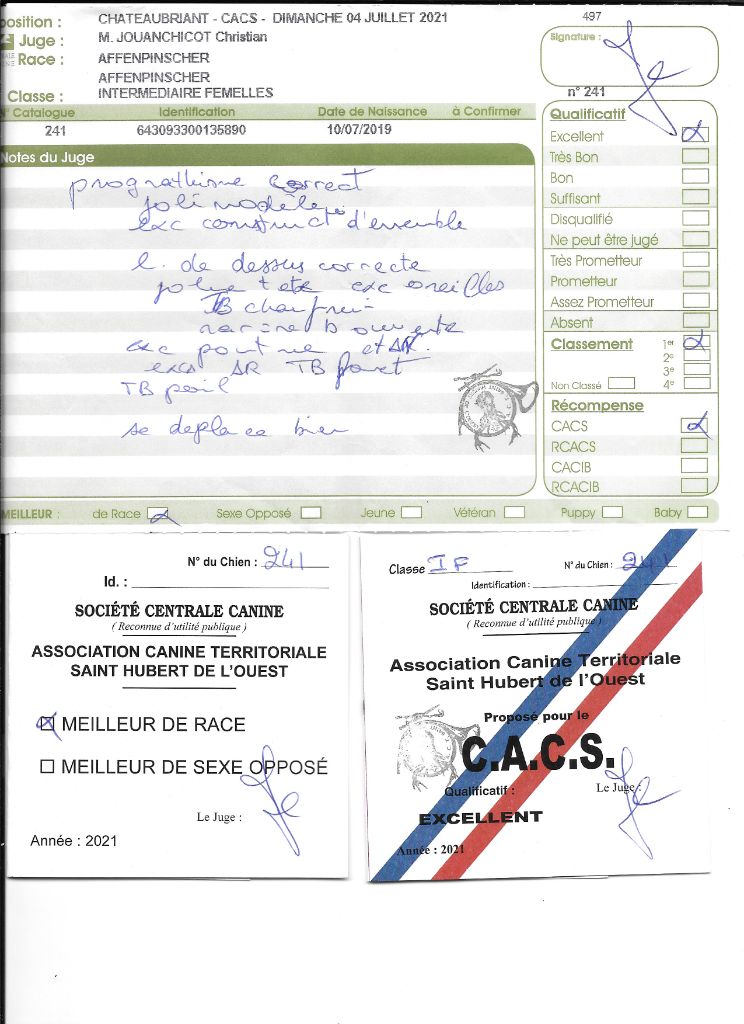 position : CHATEAUBRIANT - CACS - DIMANCHE 04 JUILLET 2021
497
Juge : M. JOUANCHICOT Christian
Signature :
Race : AFFENPINSCHER
AFFENPINSCHER
Classe : INTERMEDIAIRE FEMELLES
n° 241
N° Catalogue Identification Date de Naissance à Confirmer
241 643093300135890 10/07/2019
Notes du Juge
prognathisme correct
joli modèle
exc construct° d'ensemble
l. de dessus correcte
jolie tete exc oreilles
TB chanfrein
narine b ouverte
exc poitrine et AR.
exc AR TB fouet
TB poil
se deplace bien
Qualificatif
Excellent
Très Bon
Bon
Suffisant
Disqualifié
Ne peut être jugé
Très Prometteur
Prometteur
Assez Prometteur
Absent
Classement 1er
2e
3e
Non Classé 4e
Récompense
CACS
RCACS
CACIB
RCACIB
MEILLEUR : de Race Sexe Opposé Jeune Vétéran Puppy Baby
N° du Chien : 241
Id. :
SOCIÉTÉ CENTRALE CANINE
( Reconnue d'utilité publique )
ASSOCIATION CANINE TERRITORIALE
SAINT HUBERT DE L'OUEST
MEILLEUR DE RACE
MEILLEUR DE SEXE OPPOSÉ
Le Juge :
Année : 2021
Classe IF N° du Chien : 241
Identification :
SOCIÉTÉ CENTRALE CANINE
( Reconnue d'utilité publique )
Association Canine Territoriale
Saint Hubert de l'Ouest
Proposé pour le
C.A.C.S.
Qualificatif : Le Juge :
EXCELLENT
Année : 2021